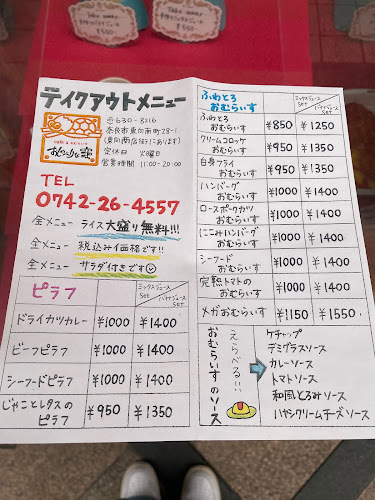 Take away
¥550
Take away
¥550
テイクアウトメニュー
〒630-8216
奈良市東向南町28-1
(東向商店街にあります)
定休日 火曜日
営業時間 11:00-20:00
TEL
0742-26-4557
全メニュー ライス大盛り無料!!!
全メニュー 税込み価格です!!
全メニュー サラダ付きです
ピラフ
ミックスジュース SET
バナナジュース SET
ドライカツカレー ¥1000 ¥1400
ビーフピラフ ¥1000 ¥1400
シーフードピラフ ¥1000 ¥1400
じゃことレタスのピラフ ¥950 ¥1350
ふわとろ
おむらいす
ミックスジュース SET
バナナジュース SET
ふわとろ
おむらいす ¥850 ¥1250
クリームコロッケ
おむらいす ¥950 ¥1350
白身フライ
おむらいす ¥950 ¥1350
ハンバーグ
おむらいす ¥1000 ¥1400
ロースポークカツ
おむらいす ¥1000 ¥1400
にこみハンバーグ
おむらいす ¥1000 ¥1400
シーフード
おむらいす ¥1000 ¥1400
完熟トマトの
おむらいす ¥1000 ¥1400
メガおむらいす ¥1150 ¥1550.
えらべる!!!
おむらいすのソース
ケチャップ
デミグラスソース
カレーソース
トマトソース
和風とろみソース
ハヤシクリームチーズソース